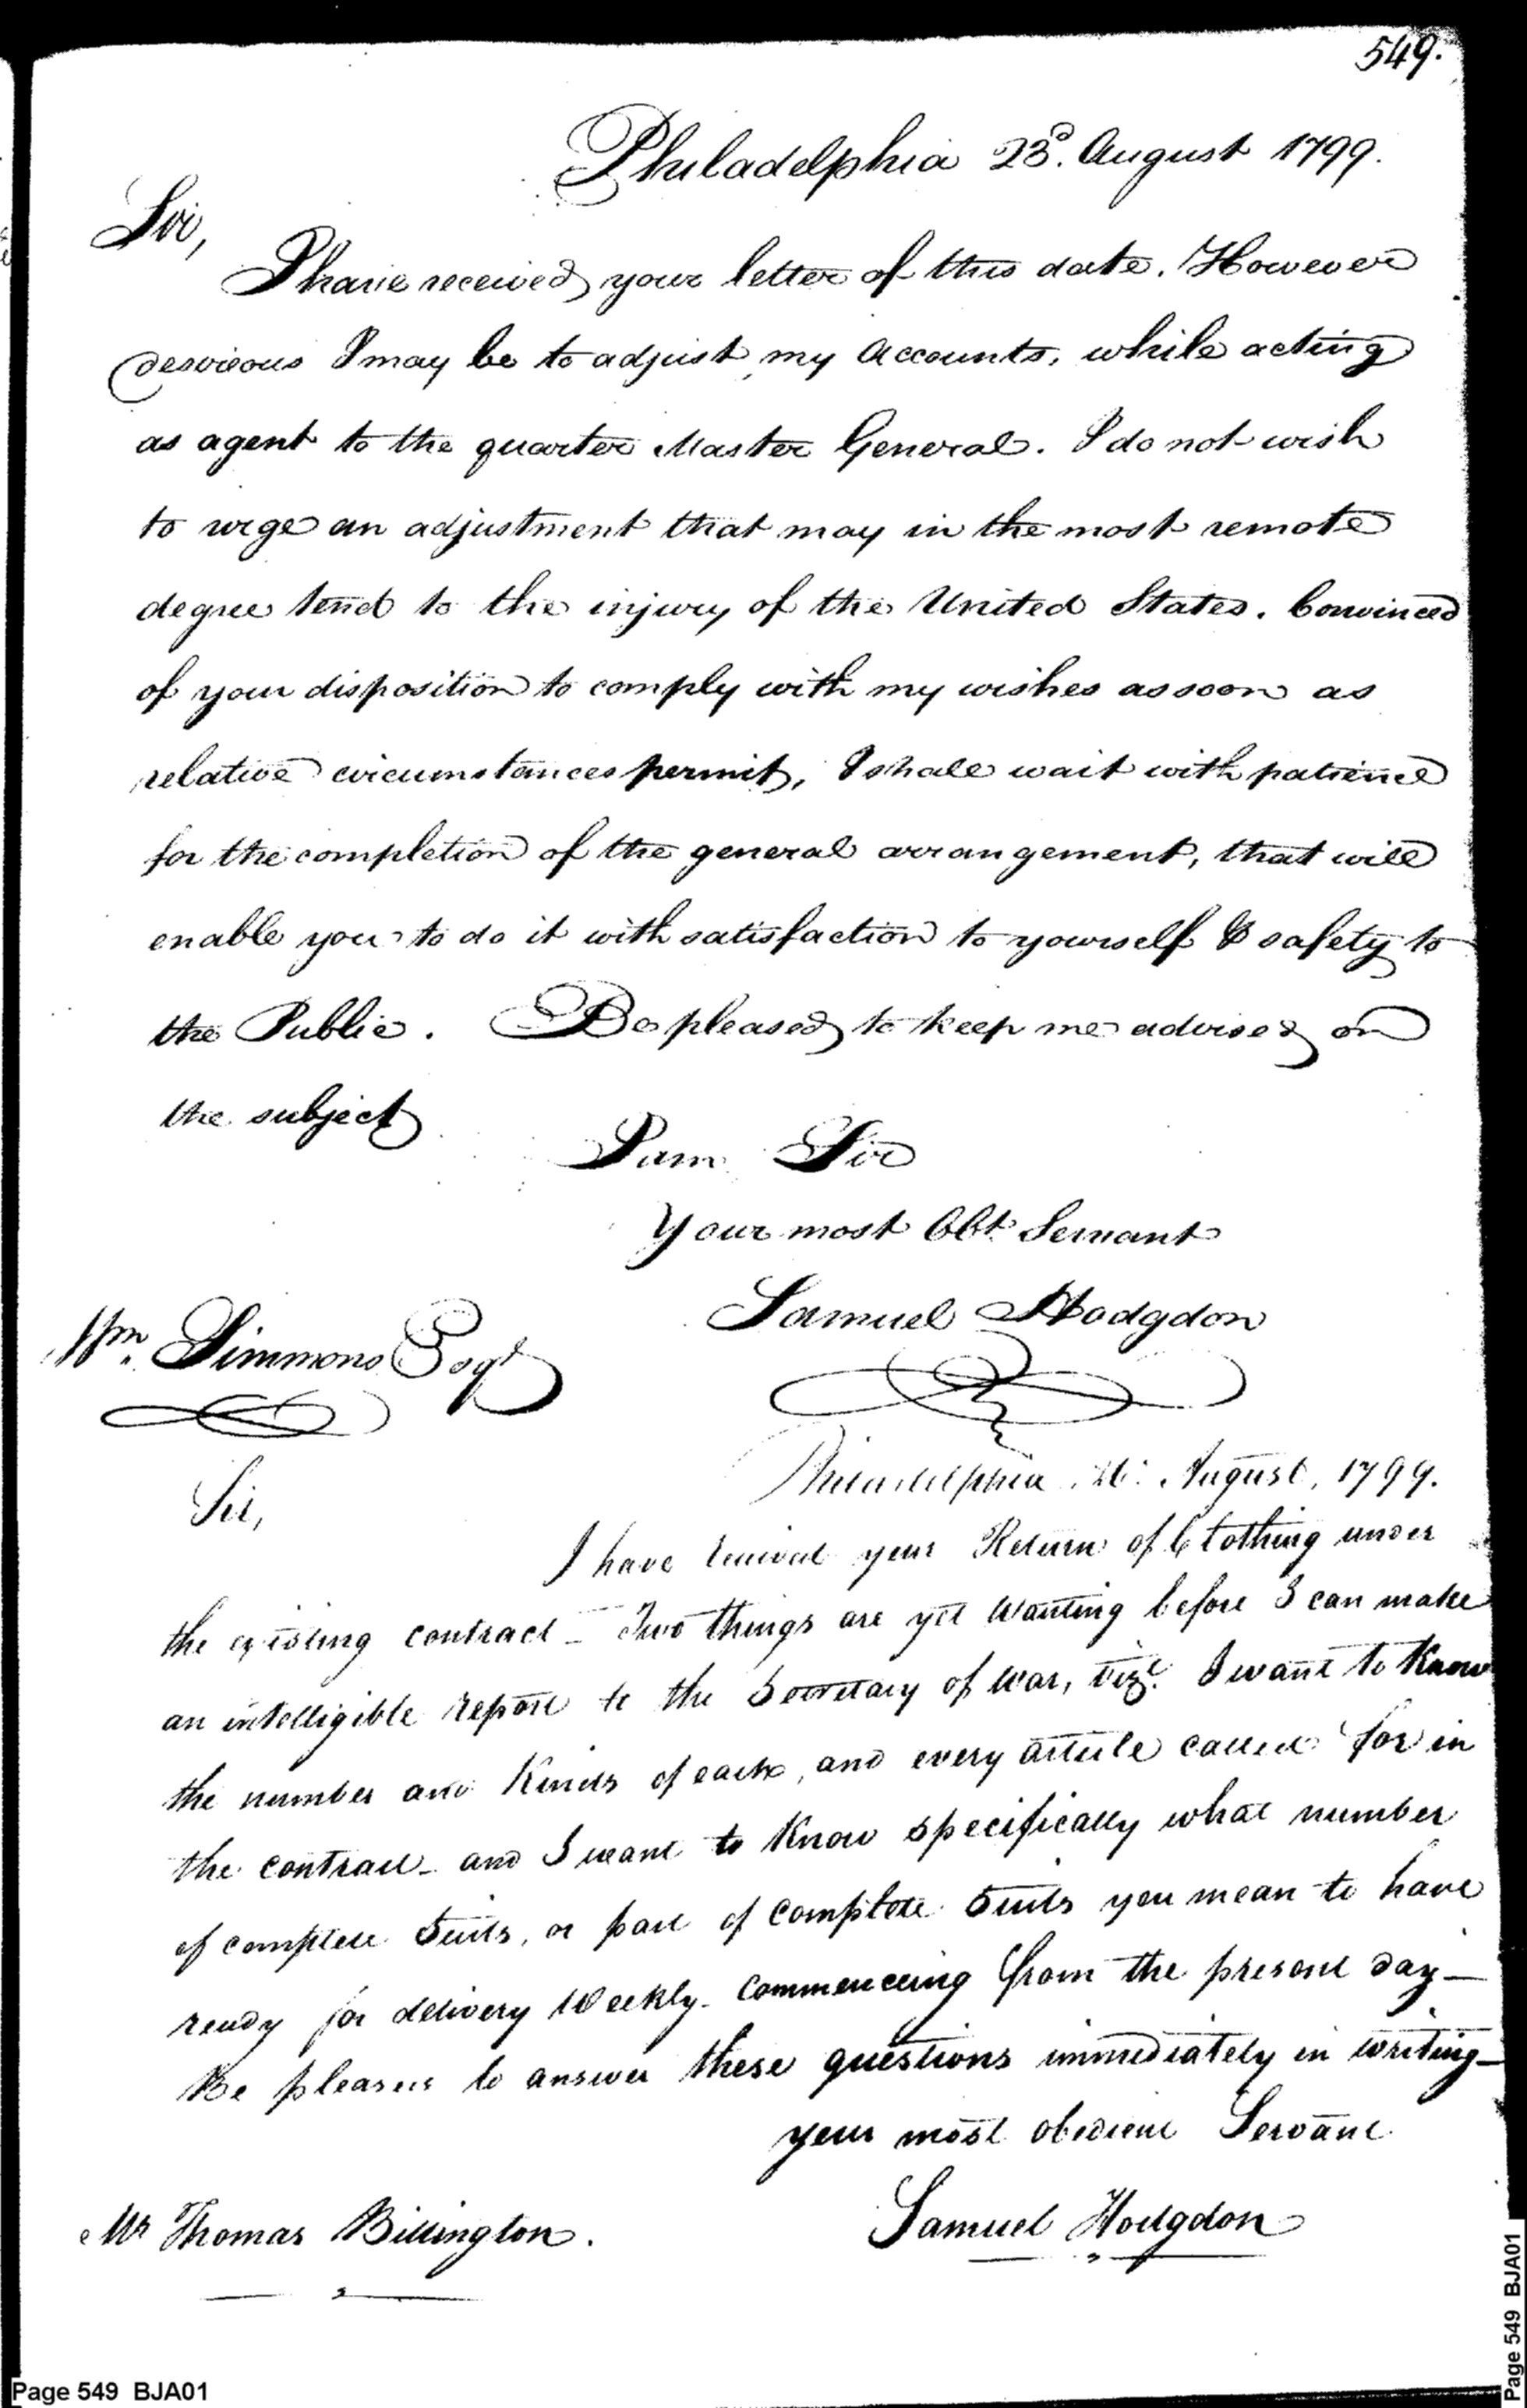 549.
Philadelphia 23d. August 1799.
Sir,
I have received your letter of this date. However
desireous I may be to adjust my Accounts, while acting
as agent to the quarter Master General. I do not wish
to urge an adjustment that may in the most remote
degree tend to the injury of the United States. Convinced
of your disposition to comply with my wishes as soon as
relative circumstances permit, I shall wait with patience
for the completion of the general arrangement, that will
enable you to do it with satisfaction to yourself & safety to
the Public. Be pleased to keep me advised on
the subject
I am Sir
Your most Obt. Servant
Samuel Hodgdon
Wm. Simmons Esqr
Philadelphia 26. August, 1799.
Sir,
I have received your Return of Clothing under
the existing contract - Two things are yet wanting before I can make
an intelligible report to the Secretary of War, vizt. I want to Know
the number and Kinds of each, and every article called for in
the contract - and I want to Know specifically what number
of complete Suits, or part of complete Suits you mean to have
ready for delivery Weekly - commenceing from the present day -
Be pleased to answer these questions immediately in writing -
your most obedient Servant
Samuel Hodgdon
Mr Thomas Billington.
Page 549 BJA01
Page 549 BJA01